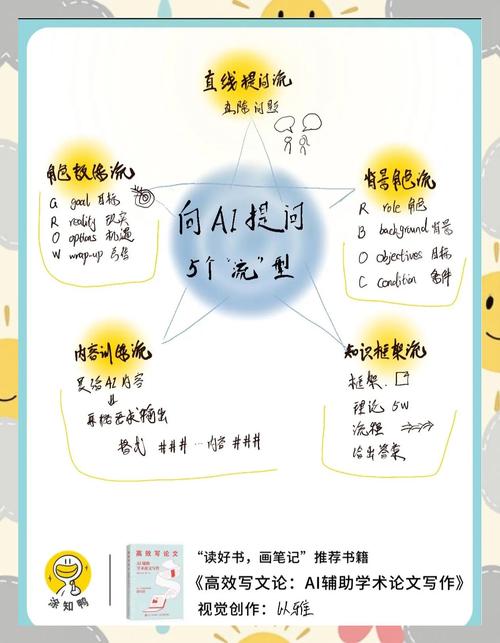 直线提问流
去除问题
角色教练流
G goal 目标
R reality 现实
O options 机遇
W wrap-up 与结
背景角色流
R role 角色
B background 背景
O objectives 目标
C condition 条件
向AI提问
5个“流”型
内容训练流
灵给AI内容
再按要求输出
格式 ### … 内容 ###
知识框架流
框架
理论 5W
流程
给出答案
涂知鸭
高效写论文
AI辅助
学术论文写作
“读好书，画笔记”推荐书籍
《高效写文论：AI辅助学术论文写作》
视觉创作：以雅